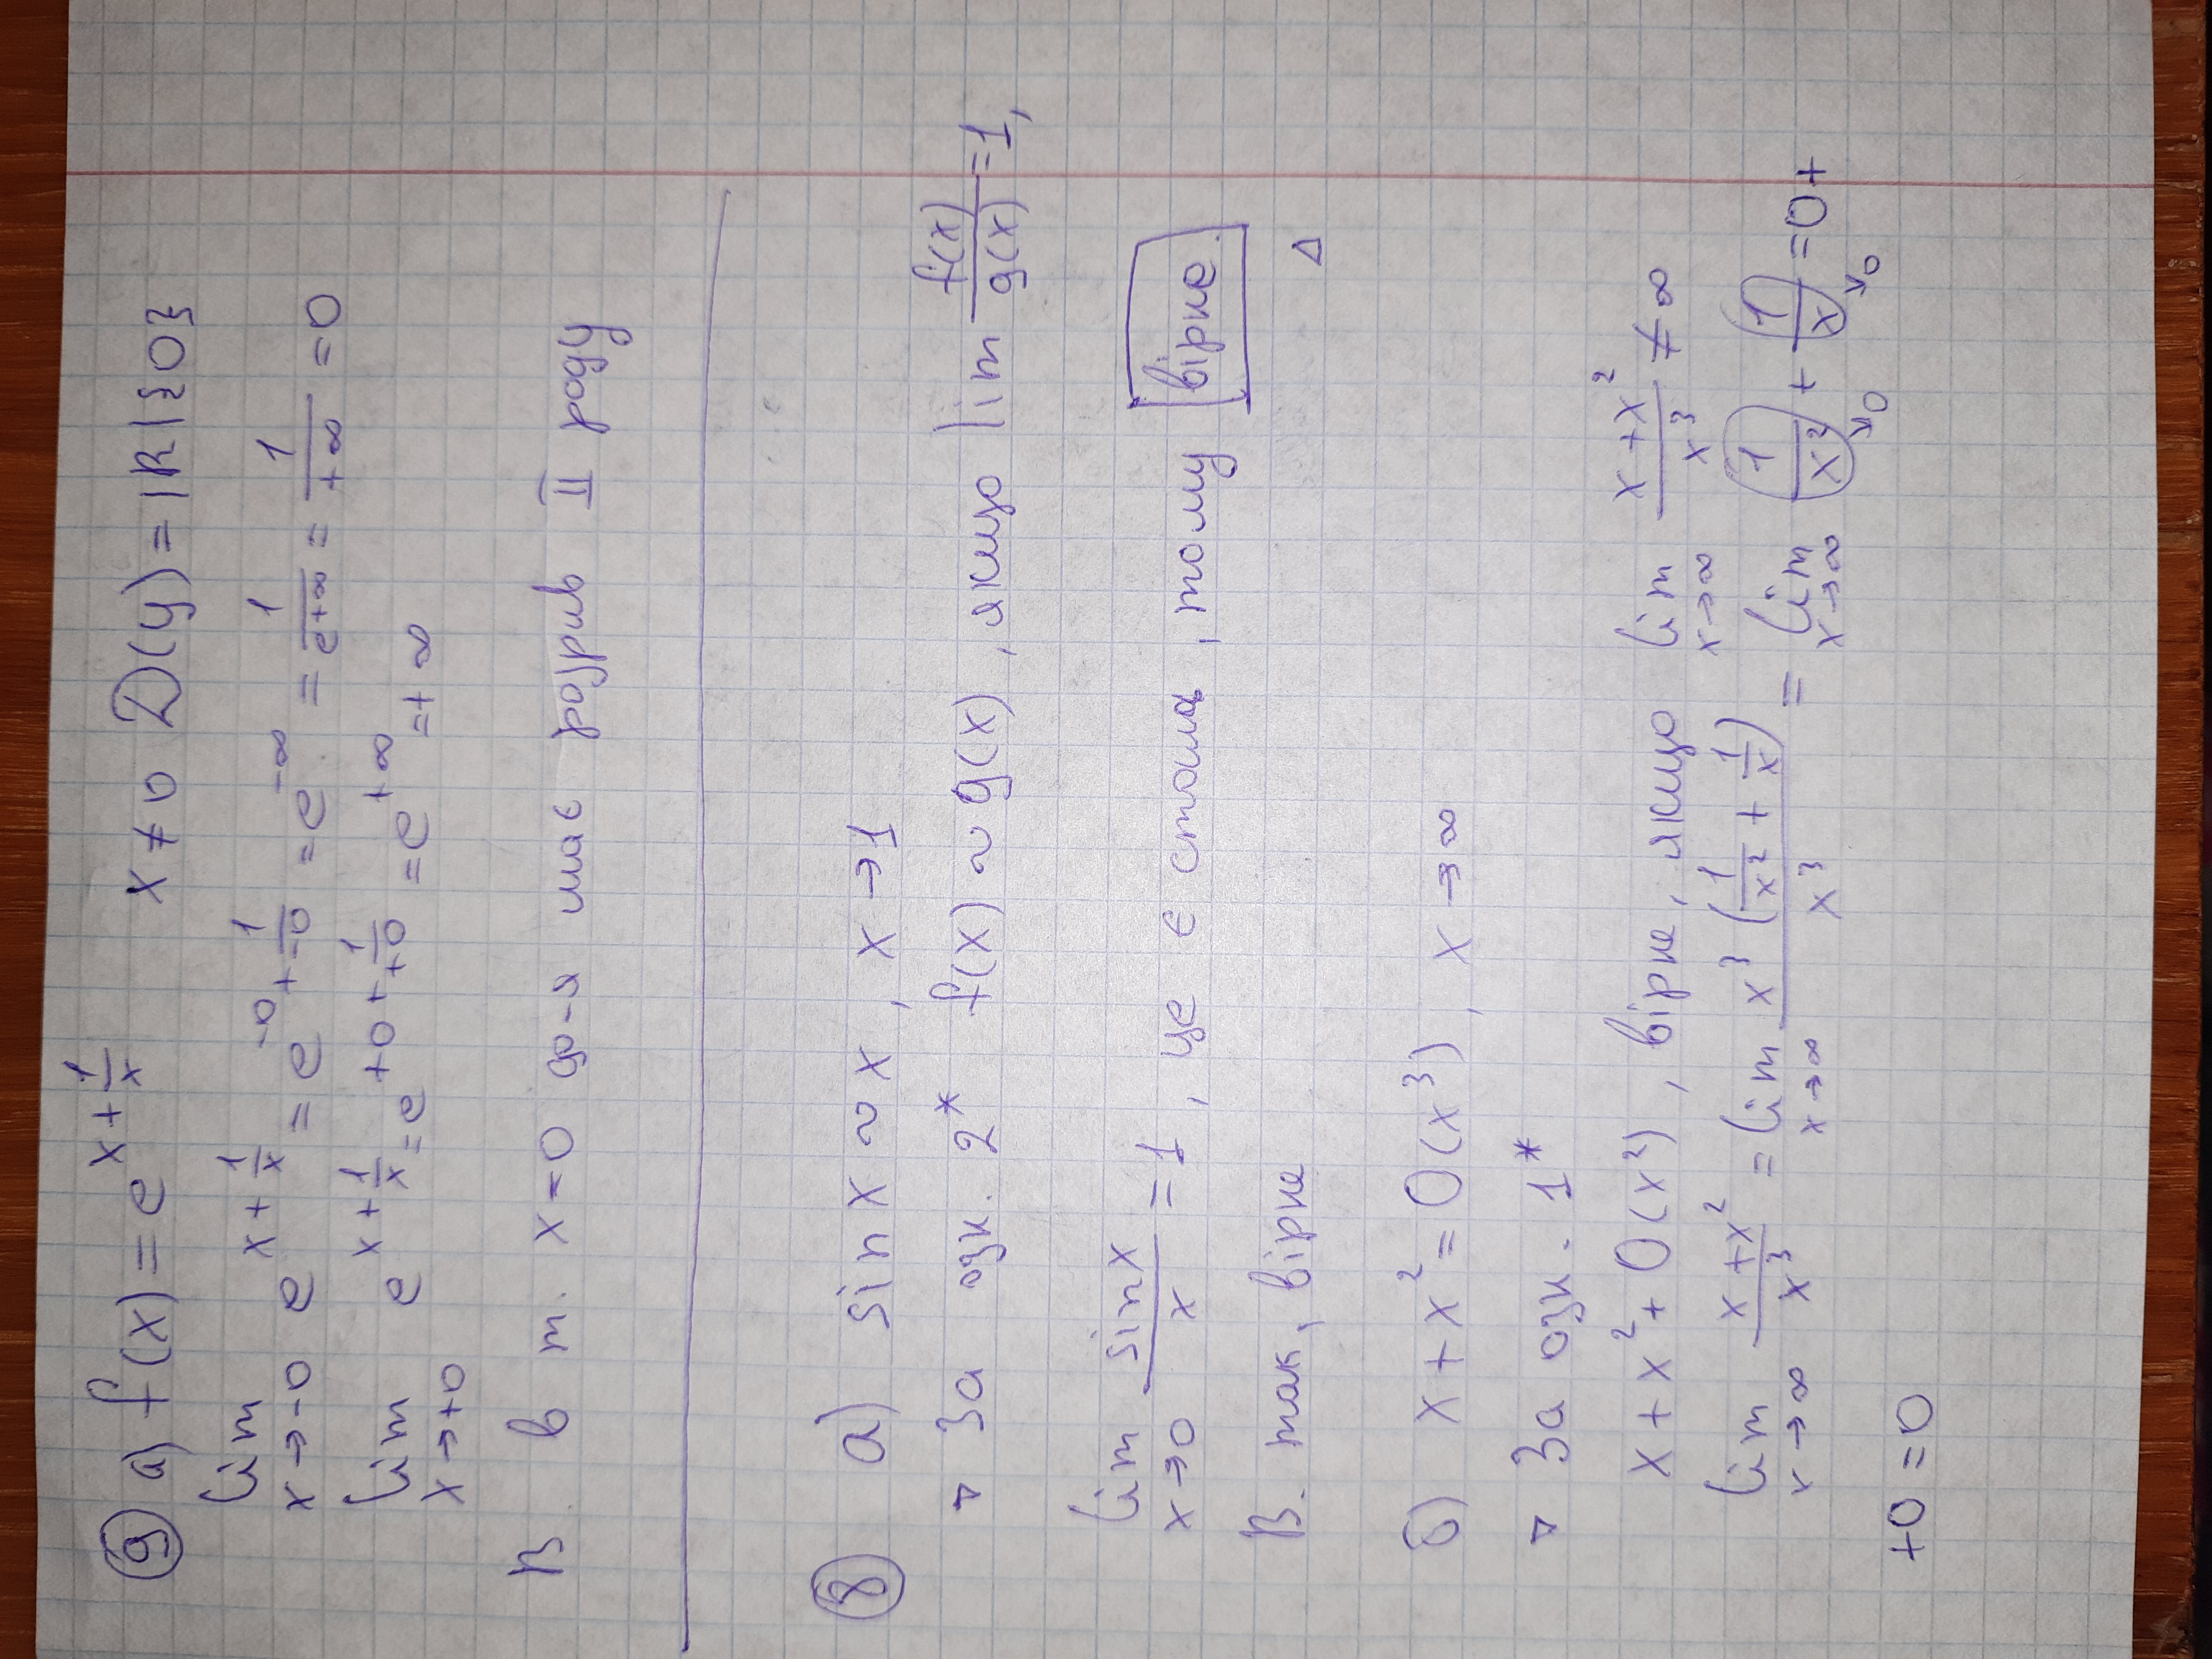 9 а) f(x) = e^{x + 1/x}    x ≠ 0  D(y) = IR \ {0}
lim_{x→-0} e^{x + 1/x} = e^{-0 + 1/-0} = e^{-∞} = 1/e^{+∞} = 1/+∞ = 0
lim_{x→+0} e^{x + 1/x} = e^{+0 + 1/+0} = e^{+∞} = +∞
В. в т. x=0 ф-я має розрив II роду
8 а) sin x ~ x, x → 1
▽ За озн. 2* f(x) ~ g(x), якщо lim f(x)/g(x) = 1,
lim_{x→0} sinx/x = 1, це є стала, тому вірне.
В. так, вірне
△
б) x + x² = O(x³), x → ∞
▽ За озн. 1*
x + x² + O(x²), вірне, якщо lim_{x→∞} (x+x²)/x³ ≠ ∞
lim_{x→∞} (x+x²)/x³ = lim_{x→∞} x³(1/x² + 1/x)/x³ = lim_{x→∞} 1/x² ↘0 + 1/x ↘0 = 0 +
+0 = 0